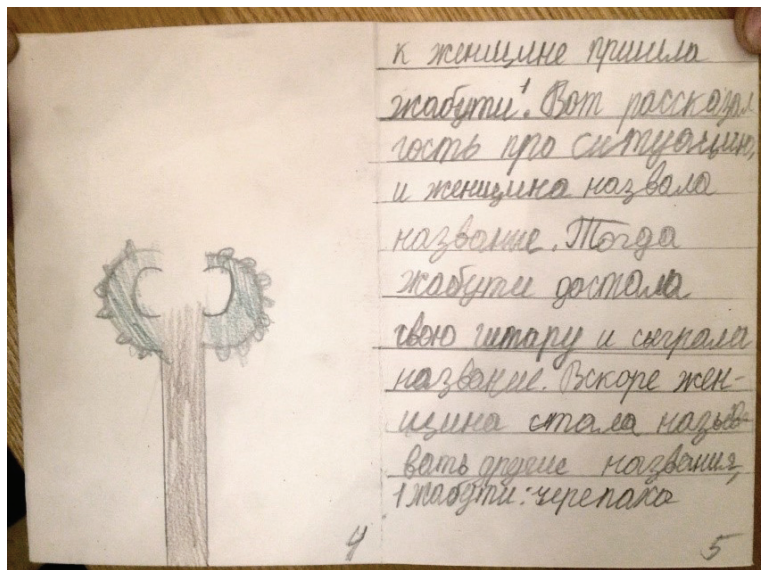 к женщине пришла
жабути¹. Вот рассказал
гость про ситуацию,
и женщина назвала
название. Тогда
жабути достала
свою гитару и сыграла
название. Вскоре жен-
щина стала назы-
вать другие названия,
1 жабути: черепаха
4
5